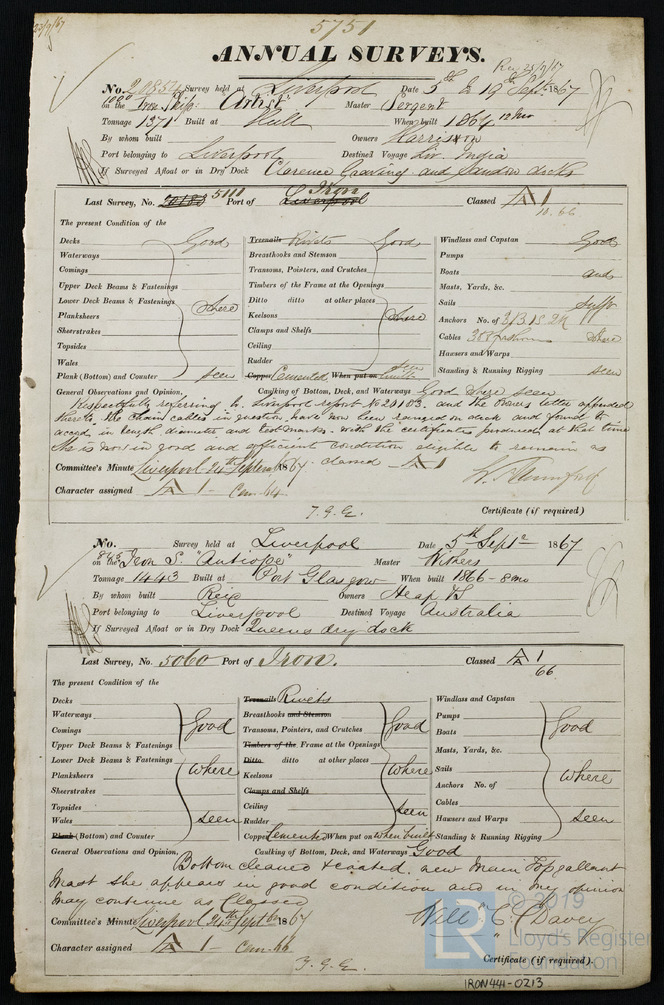 5751
23/9/67
ANNUAL SURVEYS.
Rec 25/9/67
No. 20854 Survey held at Liverpool Date 5th & 19th Sept 1867
on the Iron Ship: "Artist" Master Sergent
Tonnage 1371 Built at Hull When built 1864 12 mo
By whom built Owners Harrison
Port belonging to Liverpool Destined Voyage Liv. India
If Surveyed Afloat or in Dry Dock Clarence Graving and Sandon docks
Last Survey, No. 5111 Port of Iron Liverpool Classed A 1
10.66
The present Condition of the
Decks Good
Waterways
Comings
Upper Deck Beams & Fastenings
Lower Deck Beams & Fastenings where
Planksheers
Sheerstrakes
Topsides
Wales
Plank (Bottom) and Counter seen
Treenails Rivets Good
Breasthooks and Stemson
Transoms, Pointers, and Crutches
Timbers of the Frame at the Openings
Ditto ditto at other places
Keelsons where
Clamps and Shelfs
Ceiling
Rudder seen
Copper Cemented, When put on built
Windlass and Capstan Good
Pumps
Boats and
Masts, Yards, &c.
Sails Suff
Anchors No. of 3/3.1S.2K
Cables 300 fathoms where
Hawsers and Warps
Standing & Running Rigging seen
General Observations and Opinion, Caulking of Bottom, Deck, and Waterways Good where seen
Respectfully referring to Liverpool report No 28103. and the Owners letter appended
thereto. the chain cables in question have now been ranged on deck and found to
accord in length diameter and test marks. with the certificates produced at that time
She is now in good and efficient condition eligible to remain as
classed A 1
Committee's Minute Liverpool 24th September 1867
Character assigned A 1 -
T.G.G. Certificate (if required)
No. Survey held at Liverpool Date 5th Sept 1867
on the Iron S. "Antiope" Master Withers
Tonnage 1443 Built at Port Glasgow When built 1866 - 8 mo
By whom built Reid Owners Heap
Port belonging to Liverpool Destined Voyage Australia
If Surveyed Afloat or in Dry Dock Queens dry dock
Last Survey, No. 5060 Port of Iron. Classed A 1
66
The present Condition of the
Decks
Waterways
Comings Good
Upper Deck Beams & Fastenings
Lower Deck Beams & Fastenings
Planksheers where
Sheerstrakes
Topsides
Wales seen
Plank (Bottom) and Counter
Treenails Rivets
Breasthooks and Stemson
Transoms, Pointers, and Crutches Good
Timbers of the Frame at the Openings
Ditto ditto at other places
Keelsons where
Clamps and Shelfs
Ceiling seen
Rudder
Copper Cemented When put on when built
Windlass and Capstan
Pumps Good
Boats
Masts, Yards, &c.
Sails
Anchors No. of where
Cables
Hawsers and Warps seen
Standing & Running Rigging
General Observations and Opinion, Caulking of Bottom, Deck, and Waterways Good
Bottom cleaned & coated, new main Topgallant
mast she appears in good condition and in my opinion
may continue as Classed
Will C. Davey
Committee's Minute Liverpool 24th Sept 1867
Character assigned A 1 -
T.G.G. Certificate (if required).
LR
© 2019
Lloyd's Register
Foundation
IRON441-0213